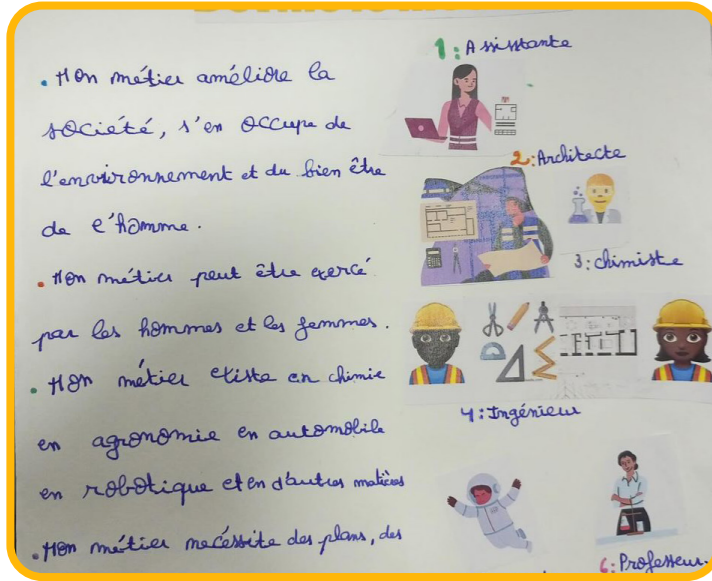 . Mon métier améliore la
société, s'en occupe de
l'environnement et du bien être
de l'homme.
. Mon métier peut être exercé
par les hommes et les femmes.
. Mon métier existe en chimie
en agronomie en automobile
en robotique et en d'autres matières
. Mon métier nécessite des plans, des
1: Assistante
2: Architecte
3: chimiste
4: Ingénieur
6: Professeur.